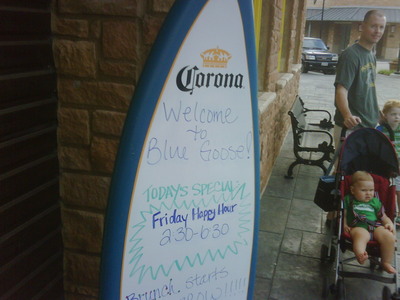 Corona
Welcome
to
Blue Goose!
TODAYS SPECIAL
Friday Happy Hour
2:30-6:30
Brunch. Starts